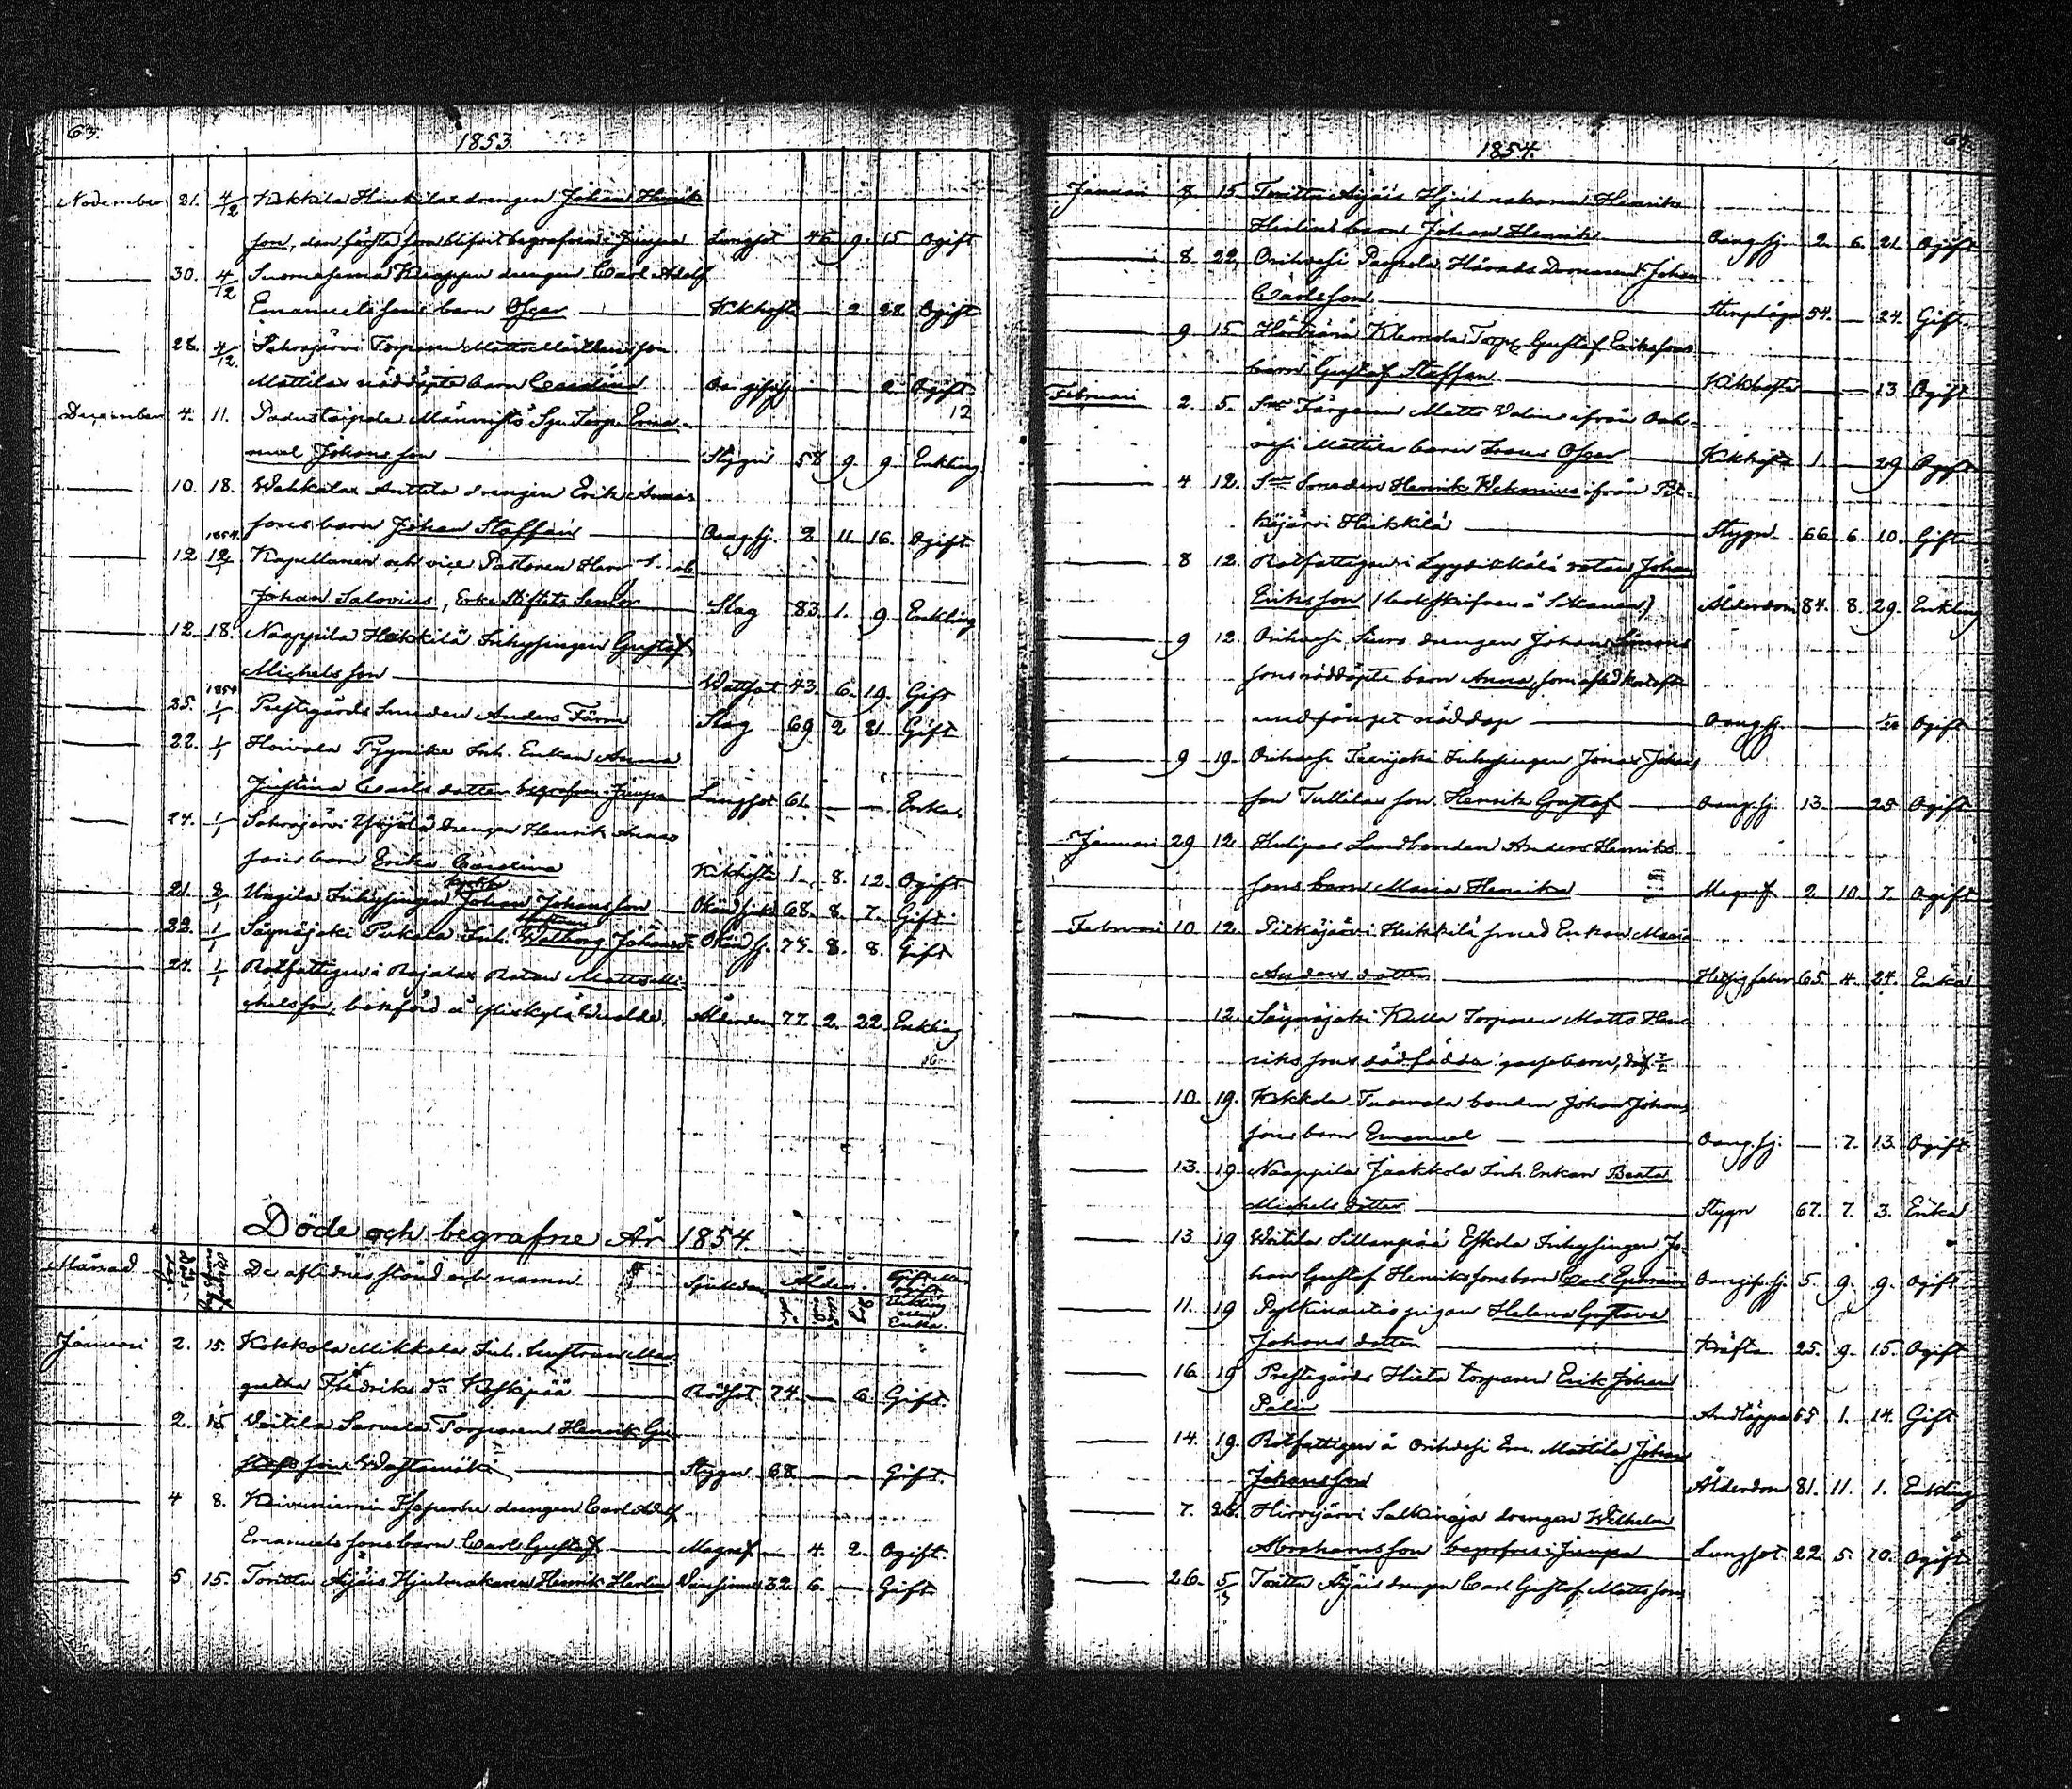 63.
1853
November 21. 4/12 Kokkila Haukilax drengen Johan Henrik
son, den förste som blifvit begrafven i Juupa Lungsot 46 9. 15 Ogift
30. 4/12 Suomasema Knappu drengen Carl Adolf
Emanuelssons barn Oscar Kikhosta 2 28 Ogift
28. 4/12 Sahrajärvi Torparen Matts Matthiesson
Mattilas nöddöpte barn Carolina Oangifsj 2 Ogift
12
December 4. 11. Padustaipale Männistö Torp. Ema-
nuel Johansson Stygn 58 9. 9. Enkling
10. 18. Wehkalax Anttila drengen Erik Anders
sons barn Johan Staffan Oang.sj. 2 11 16. Ogift
1854
12 12/1 Kapellanen och vice Pastoren Herr
Johan Salovius, Erke Stiftets Senior Slag 83. 1. 9 Enkling
12. 18. Naappila Heikkilä Inhysingen Gustaf
Michelsson Wattsot 43. 6. 19. Gift
1854
25. 1/1 Prestgårds Smeden Anders Färm Slag 69 2 21. Gift
22. 1/1 Hoivala Pyynike Inh. Enkan Anna
Justina Carlsdotter begrafven i Juupa Lungsot 61. Enka
24. 1/1 Sahrajärvi Yrjölä drengen Henrik Anders
sons barn Erika Carolina Kikhosta 1. 8. 12. Ogift
21. 8/1 Ungila Inhysingen Johan Johansson Okänd sjukd 68. 8. 7. Gift
22. 1/1 Säynäjoki Pukala Inh. hustrun Walborg Johansd:r Okänd sj. 73. 8. 8. Gift
24. 1/1 Rotfattigen i Rajalax Rotan Matts Mi-
chelsson, bokförd å Yliskylä Uusalde, Ålderdom 77. 2. 22 Enkling
16
Döde och begrafne År 1854.
Månad De aflidnes stånd och namn Sjukdom Ålder. Gift eller Ogift Enkling eller Enka.
Januari 2. 15. Kokkola Mikkola Inh. hustrun Mar-
gretha Fredriksd:r Koskipää Rödsot 74. 6. Gift.
2. 15 Voitila Sarvela Torparen Henrik Gu-
stafsson Wastamäki Stygn 68. Gift.
4 8. Koivuniemi drengen Carl Adolf
Emanuelssons barn Carl Gustaf Magref 4. 2. Ogift.
5 15. Torittu Äijäis Hjulmakaren Henrik Herlin Vansinne 32. 6. Gift.
1854.
64.
Januari 8. 15. Torittu Äijäis Hjulmakaren Henrik
Herlins barn Johan Henrik Oang.sj. 2. 6. 21. Ogift
8. 22. Orihvesi Pajusola Härads Domaren Johan
Carlsson Stenplåga 54. 24. Gift
9 15 Klemola Torp. Gustaf Erikssons
barn Gustaf Staffan Kikhosta 13 Ogift
Februari 2. 5. Färgaren Matts Valins ifrån Orih-
vesi Mattila barn Frans Oscar Kikhosta 1 29 Ogift
4 12. Smeden Henrik Wekonius ifrån Pit-
käjärvi Heikkilä Stygn 66. 6. 10. Gift
8 12. Rotfattigen i Lyydikkälä rotan Johan
Eriksson (bokskrifven å Sikanen) Ålderdom 84. 8. 29. Enkling
9 12. Orihvesi Siuro drengen Johan Simons
sons nöddöpte barn Anna, som afled kort efter
undfånget nöddop Oang.sj. 1/24 Ogift
9 19. Orihvesi Teerijoki Inhysingen Jonas Johans
son Tullilas son Henrik Gustaf Oang.sj. 13. 25. Ogift
Januari 29 12. Hulipas Landbonden Anders Henriks
sons barn Maria Henrika Magref 2. 10. 7. Ogift
Februari 10. 12. Pitkäjärvi Heikkilä smed Enkan Maria
Andersdotter Hetsig feber 65. 4. 24. Enka
12. Säynäjoki Kulla Torparen Matts Hen-
rikssons dödfödda gossebarn,
10. 19. Kokkola Tuomola bonden Johan Johans
sons barn Emanuel Oang.sj. 7. 13. Ogift
13. 19 Naappila Jaakkola Inh. Enkan Beata
Michelsdotter Stygn 67. 7. 3. Enka
13 19 Woitila Sillanpää Eskola Inhysingen Jo-
han Gustaf Henrikssons barn Carl Ephraim Oangif.sj. 5. 9. 9. Ogift
11. 19 Pylkinautis pigan Helena Gustava
Johansdotter Kräfta 25. 9. 15. Ogift
16. 19 Prestgårds Hieta torparen Erik Johan
Palin Andtäppa 55 1. 14. Gift
14. 19. Rotfattigen å Orihvesi Em. Mattila Johan
Johansson Ålderdom 81. 11. 1. Enkling
7. 26. Hirvijärvi Salkinoja drengen Wilhelm
Abrahamsson begrafven i Juupa Lungsot 22 5. 10. Ogift
26. 5/3 Torittu Äijäis drengen Carl Gustaf Mattsson